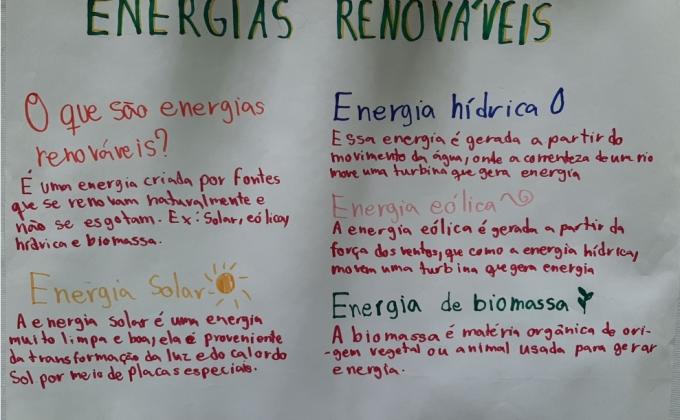 ENERGIAS RENOVÁVEIS
O que são energias
renováveis?
É uma energia criada por fontes
que se renovam naturalmente e
não se esgotam. Ex: Solar, eólica,
hídrica e biomassa.
Energia Solar
A energia solar é uma energia
muito limpa e boa, ela é proveniente
da transformação da luz e do calor do
Sol por meio de placas especiais.
Energia hídrica
Essa energia é gerada a partir do
movimento da água, onde a correnteza de um rio
move uma turbina que gera energia
Energia eólica
A energia eólica é gerada a partir da
força dos ventos, que como a energia hídrica,
movem uma turbina que gera energia
Energia de biomassa
A biomassa é matéria orgânica de ori-
-gem vegetal ou animal usada para gerar
energia.